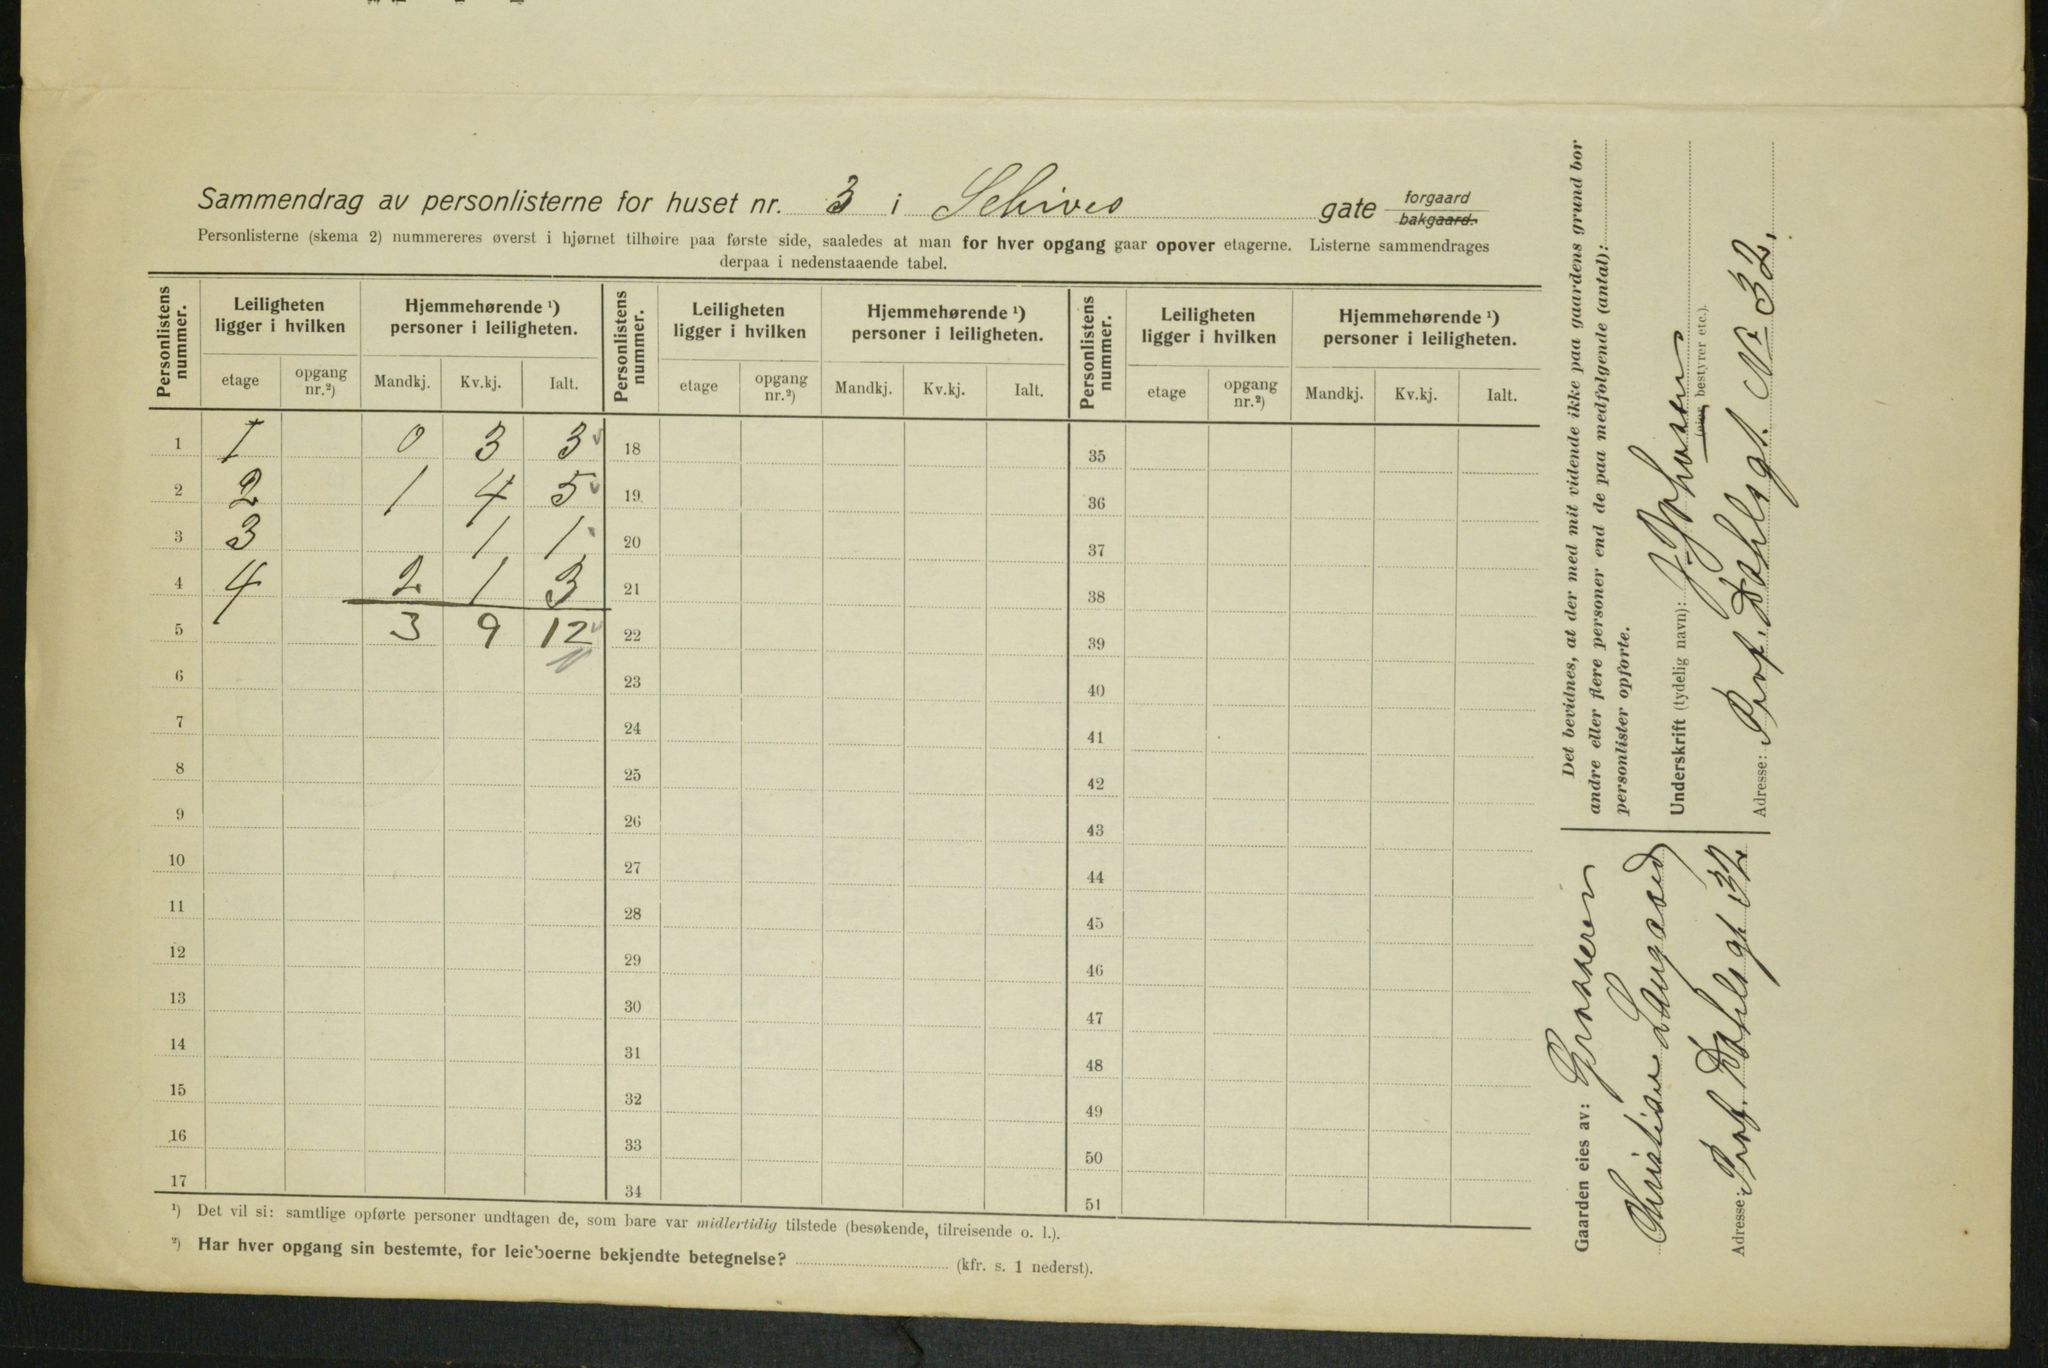 Sammendrag av personlisterne for huset nr. 3 i Schives gate forgaard bakgaard.
Personlisterne (skema 2) nummereres øverst i hjørnet tilhøire paa første side, saaledes at man for hver opgang gaar opover etagerne. Listerne sammendrages
derpaa i nedenstaaende tabel.
Personlistens nummer. Leiligheten ligger i hvilken Hjemmehørende ¹) personer i leiligheten. Personlistens nummer. Leiligheten ligger i hvilken Hjemmehørende ¹) personer i leiligheten. Personlistens nummer. Leiligheten ligger i hvilken Hjemmehørende ¹) personer i leiligheten.
etage opgang nr.²) Mandkj. Kv.kj. Ialt. etage opgang nr.²) Mandkj. Kv.kj. Ialt. etage opgang nr.²) Mandkj. Kv.kj. Ialt.
1 1 0 3 3 18 35
2 2 1 4 5 19 36
3 3 1 1 20 37
4 4 2 1 3 21 38
5 3 9 12 22 39
6 23 40
7 24 41
8 25 42
9 26 43
10 27 44
11 28 45
12 29 46
13 30 47
14 31 48
15 32 49
16 33 50
17 34 51
¹) Det vil si: samtlige opførte personer undtagen de, som bare var midlertidig tilstede (besøkende, tilreisende o. l.).
²) Har hver opgang sin bestemte, for leieboerne bekjendte betegnelse? (kfr. s. 1 nederst).
Gaarden eies av: Grosserer
Christian Langaard
Adresse: Prof. Dahlsgt 32
Det bevidnes, at der med mit vidende ikke paa gaardens grund bor
andre eller flere personer end de paa medfølgende (antal):
personlister opførte.
Underskrift (tydelig navn): J. Johnsen
(eier, bestyrer etc.).
Adresse: Prof. Dahlsgt. Nr 32.